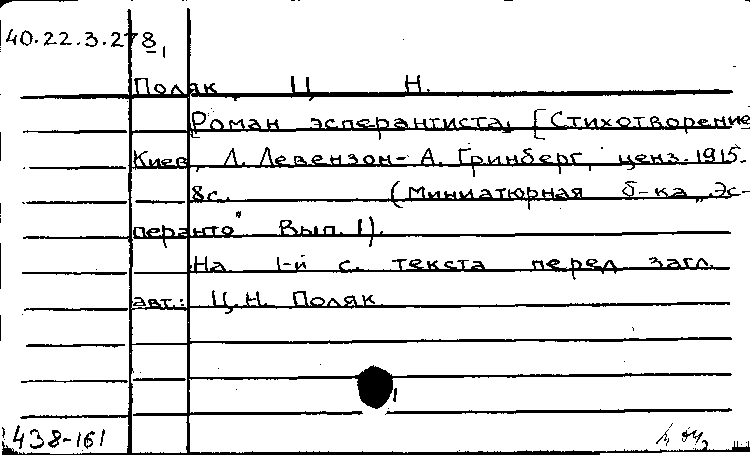 40.22.3.278,
Поляк, Ц. Н.
Роман эсперантиста. [Стихотворение
Киев, Л. Левензон-А. Гринберг, ценз. 1915.
8с. (Миниатюрная б-ка „Эс-
перанто" Вып. 1).
На 1-й с. текста перед загл.
авт.: Ц.Н. Поляк.
438-161